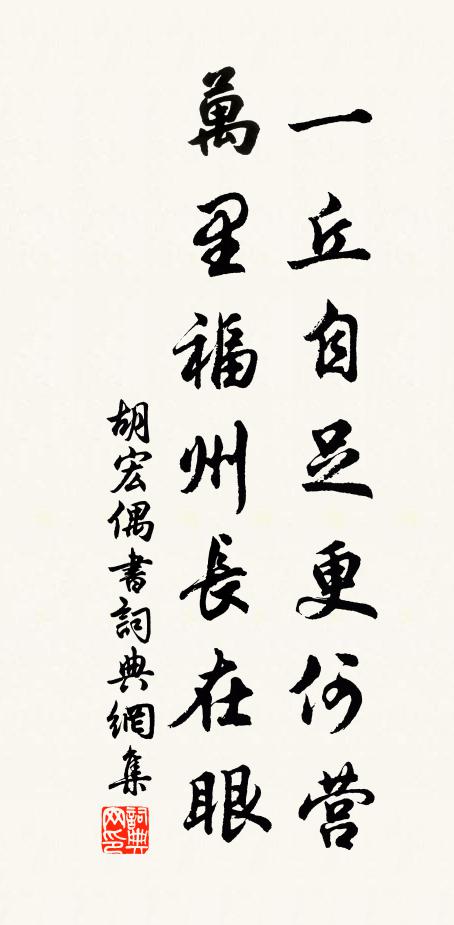 一丘自足更何营
萬里福州長在眼
胡宏偶書詞典網集
詞典网印